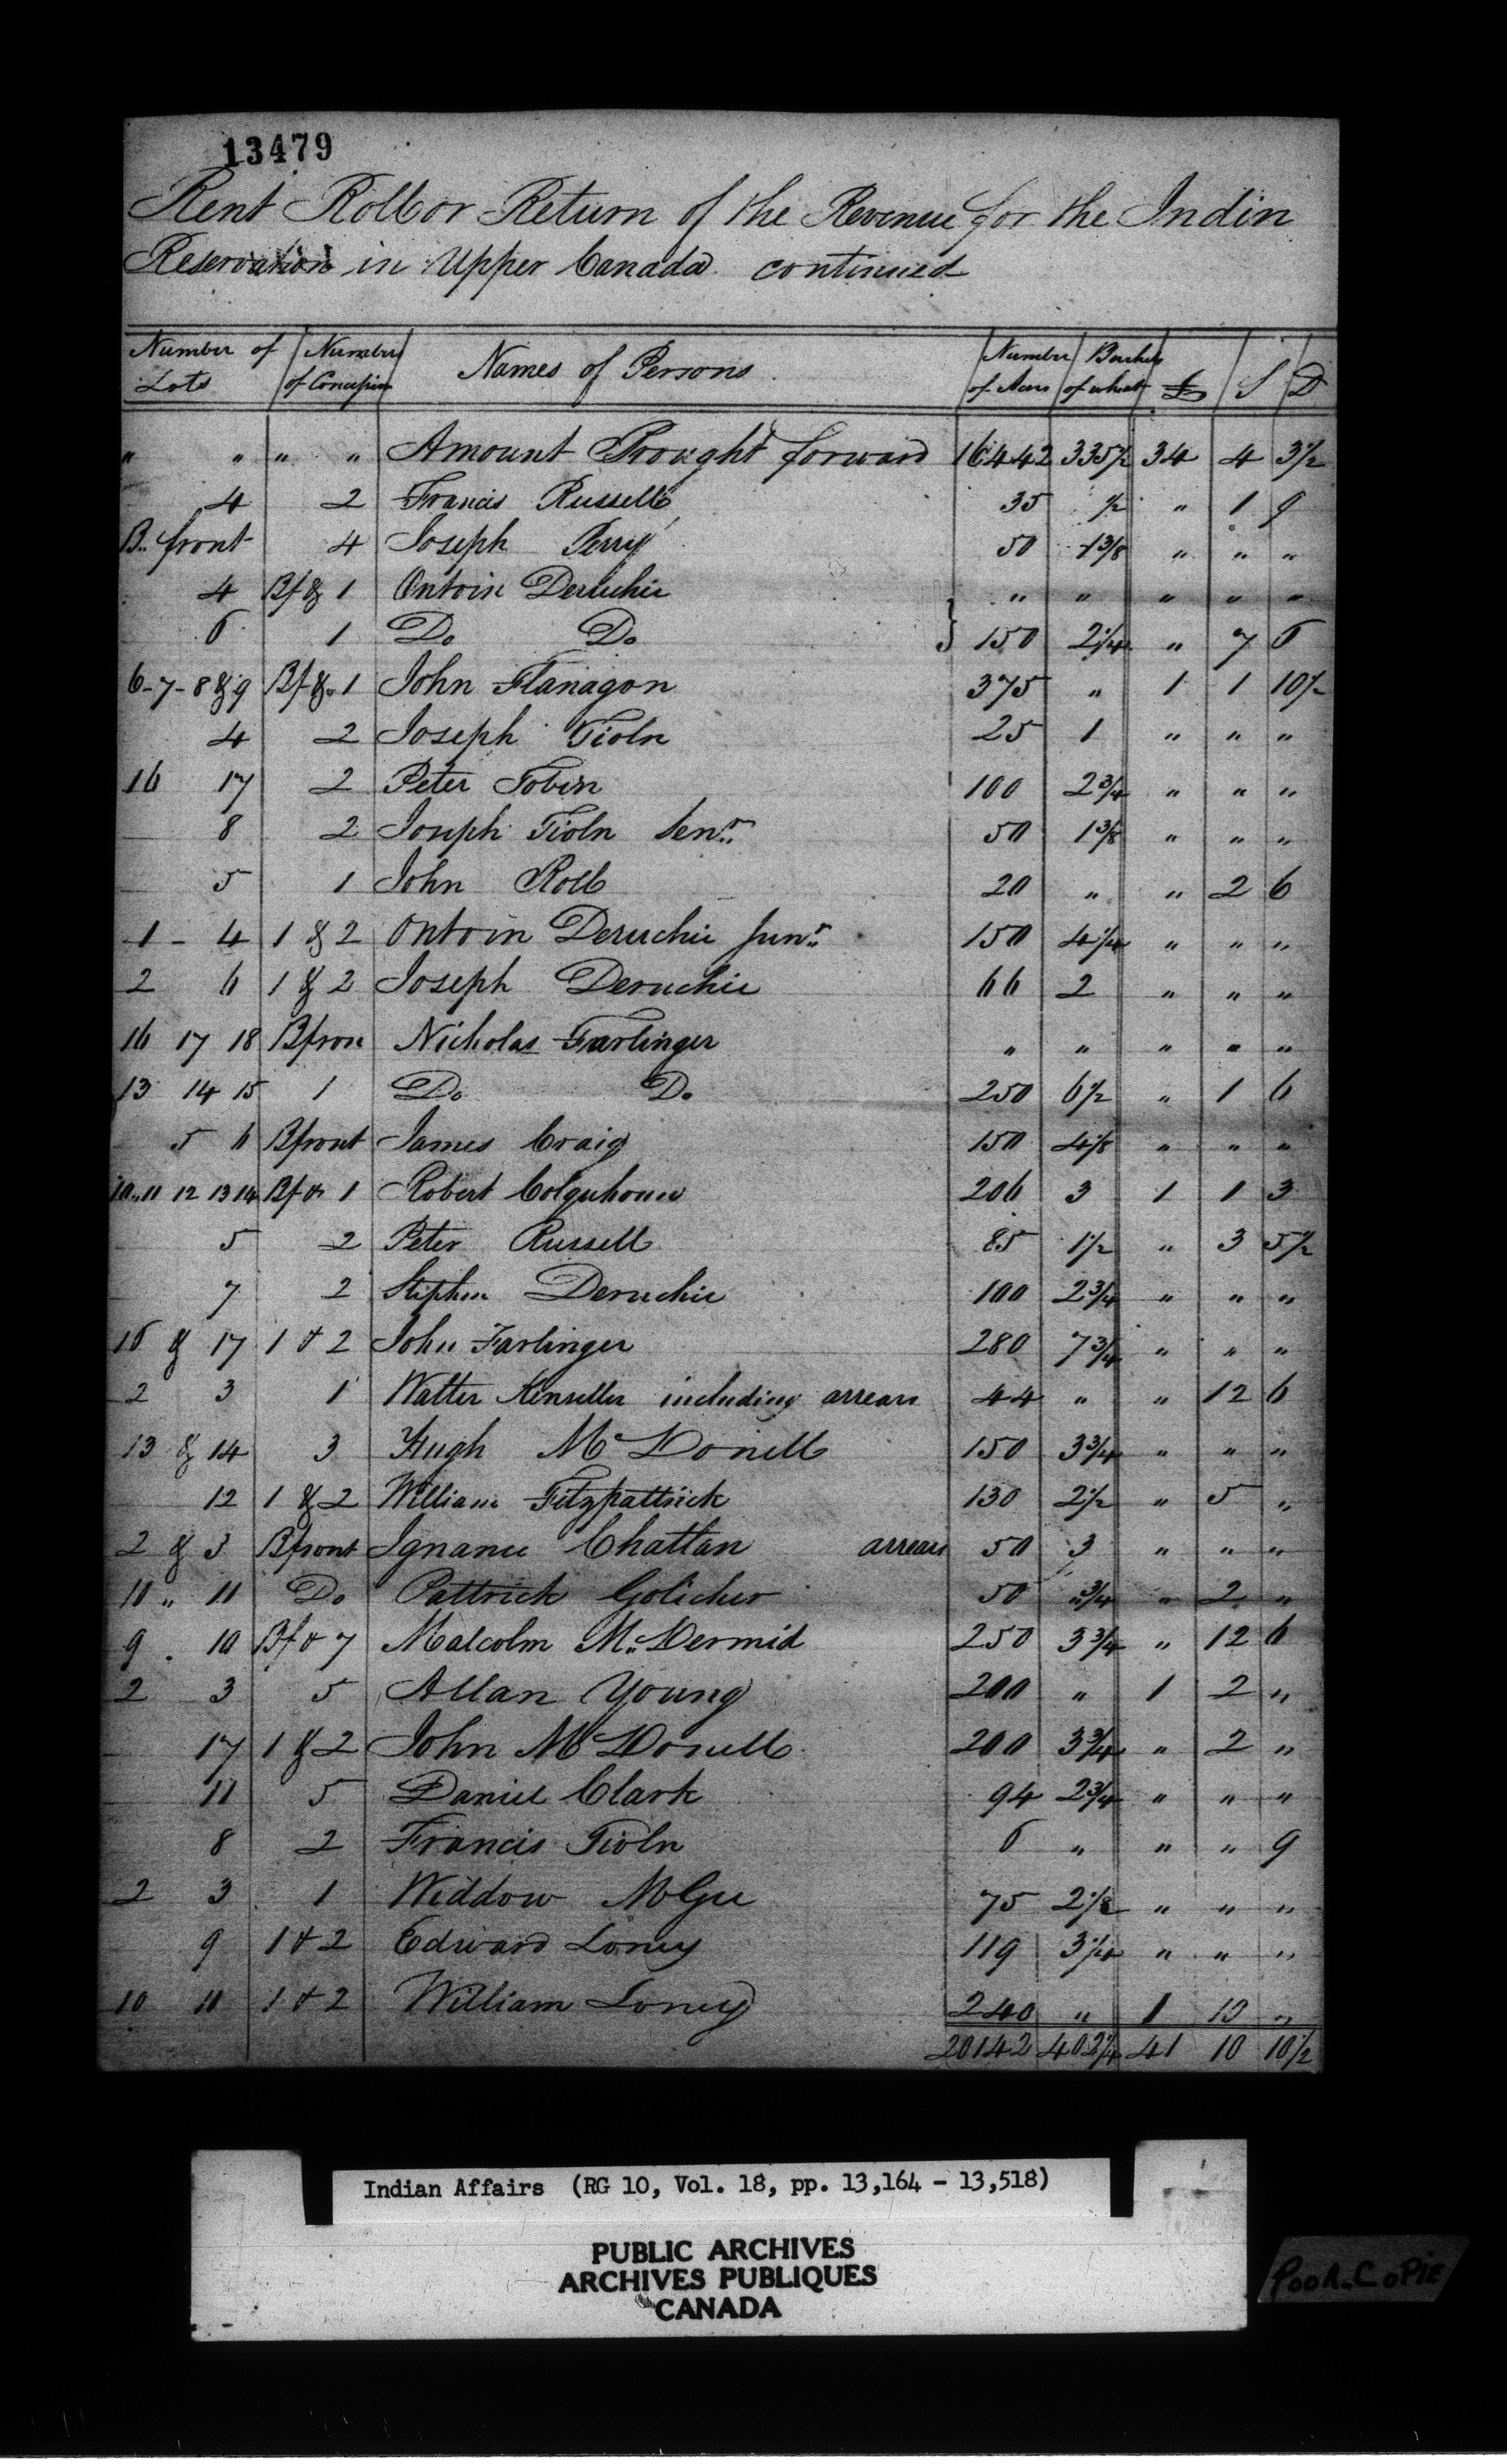 13479
Rent Roll or Return of the Revenue for the Indin
Reservation in Upper Canada continued
Number of Lots | Number of Concession | Names of Persons | Number of Acres | Bushes of wheat | £ | S | D
" " | " " | Amount Brought forward | 16442 | 335½ | 34 | 4 | 3½
4 | 2 | Francis Russell | 35 | ½ | " | 1 | 9
B.. front | 4 | Joseph Perry | 50 | 1⅜ | " | " | "
4 | Bf & 1 | Ontoin Deruchie | " | " | " | " | "
5 | 1 | Do Do | } 150 | 2¼ | " | 7 | 5
6-7-8 & 9 | Bf & 1 | John Flanagon | 375 | " | 1 | 1 | 10½
4 | 2 | Joseph Tioln | 25 | 1 | " | " | "
16 17 | 2 | Peter Tobin | 100 | 2¾ | " | " | "
8 | 2 | Joseph Tioln Senr.. | 50 | 1⅜ | " | " | "
5 | 1 | John Roll | 20 | " | " | 2 | 6
1 - 4 | 1 & 2 | Ontoin Deruchie Junr.. | 150 | 4¼ | " | " | "
2 6 | 1 & 2 | Joseph Deruchie | 66 | 2 | " | " | "
16 17 18 | Bfron | Nicholas Farlinger | " | " | " | " | "
13 14 15 | 1 | Do Do | 250 | 6½ | " | 1 | 6
5 6 | Bfront | James Craig | 150 | 4⅛ | " | " | "
10.. 11 12 13 14 | Bf & 1 | Robert Colquhoun | 206 | 3 | 1 | 1 | 3
5 | 2 | Peter Russell | 85 | 1½ | " | 3 | 5½
7 | 2 | Stephen Deruchie | 100 | 2¾ | " | " | "
15 & 17 | 1 & 2 | John Farlinger | 280 | 7¾ | " | " | "
2 3 | 1 | Walter including arrears | 44 | " | " | 12 | 6
13 & 14 | 3 | Hugh McDonell | 150 | 3¾ | " | " | "
12 | 1 & 2 | William Fitzpattrick | 130 | 2½ | " | 5 | "
2 & 3 | Bfront | Chattan arrears | 50 | 3 | " | " | "
10 " 11 | Do | Pattrick Golicher | 50 | ¾ | " | 2 | "
9 . 10 | Bf & 7 | Malcolm M..Dermid | 250 | 3¾ | " | 12 | 6
2 3 | 5 | Allan Young | 200 | " | 1 | 2 | "
17 | 1 & 2 | John McDonell | 200 | 3¾ | " | 2 | "
11 | 5 | Daniel Clark | 94 | 2¾ | " | " | "
8 | 2 | Francis Tioln | 5 | " | " | " | 9
2 3 | 1 | Widdow McGee | 75 | 2⅛ | " | " | "
9 | 1 & 2 | Edward Loney | 119 | 3¼ | " | " | "
10 11 | 1 & 2 | William Loney | 240 | " | 1 | 10 | "
20142 | 402¼ | 41 | 10 | 10½
Indian Affairs (RG 10, Vol. 18, pp. 13,164 - 13,518)
PUBLIC ARCHIVES
ARCHIVES PUBLIQUES
CANADA
POOR COPIE